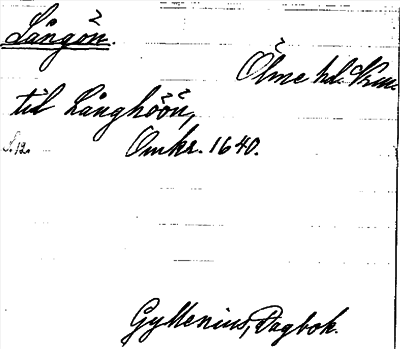 Långön.
Ölme hd. Vrml.
till Långhöön,
S. 12. Omkr. 1640.
Gyllenius, Dagbok.